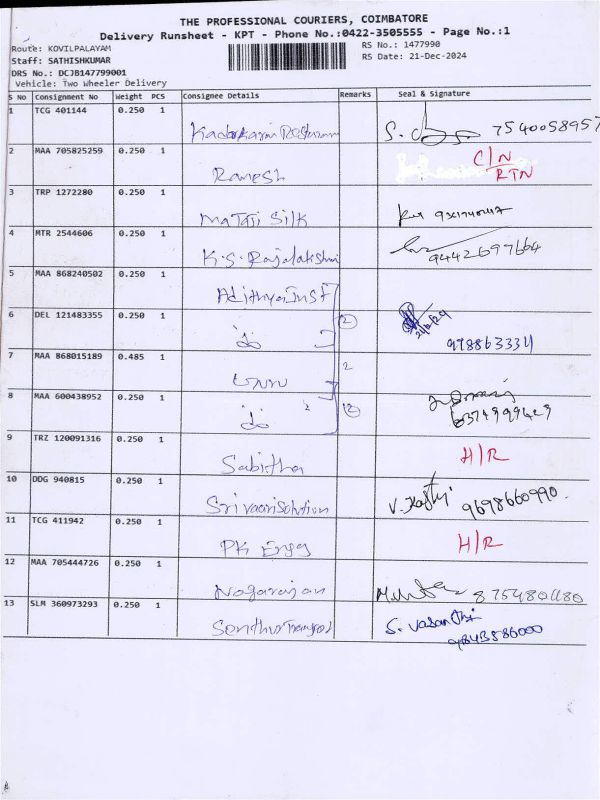 THE PROFESSIONAL COURIERS, COIMBATORE
Delivery Runsheet - KPT - Phone No.:0422-3505555 - Page No.:1
Route: KOVILPALAYAM
RS No.: 1477990
Staff: SATHISHKUMAR
RS Date: 21-Dec-2024
DRS No.: DCJB147799001
Vehicle: Two Wheeler Delivery
S No Consignment No Weight PCS Consignee Details Remarks Seal & Signature
1 TCG 401144 0.250 1 7540058957
2 MAA 705825259 0.250 1 Ramesh C/N RTN
3 TRP 1272280 0.250 1 Silk
4 MTR 2544606 0.250 1 K.S. Rajalakshmi 9442697664
5 MAA 868240502 0.250 1 Adithya Inst
6 DEL 121483355 0.250 1 2
7 MAA 868015189 0.485 1 2
8 MAA 600438952 0.250 1 2
9 TRZ 120091316 0.250 1 Sabitha H/R
10 DDG 940815 0.250 1 Srivaari Solution 9698660990.
11 TCG 411942 0.250 1 PK Engg H/R
12 MAA 705444726 0.250 1 Nagarajan
13 SLM 360973293 0.250 1 S. Vasanthi 9843586000